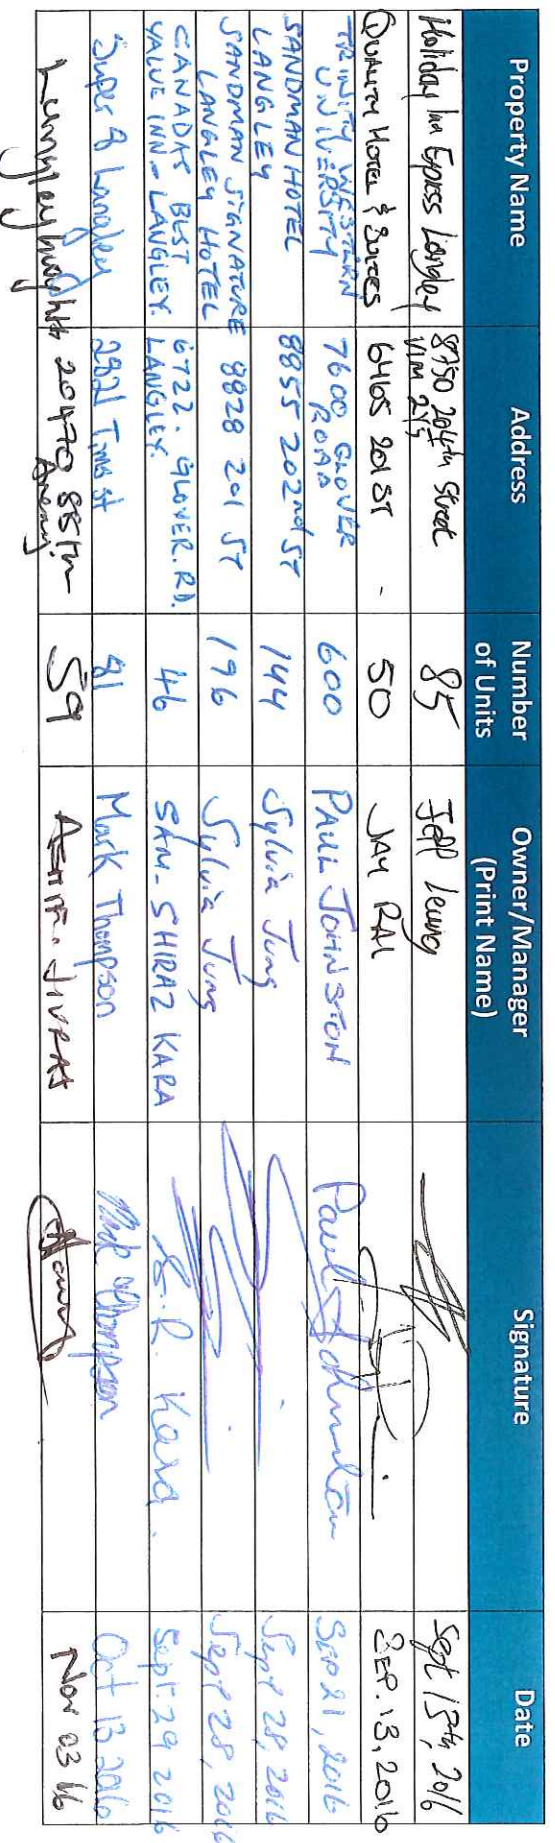 Property Name
Address
Number
of Units
Owner/Manager
(Print Name)
Signature
Date
Holiday Inn Express Langley
8750 204th Street
V1M 2Y5
85
Jeff Leung
Sept 13th, 2016
Quality Hotel & Suites
6465 201 ST
50
JAY RAI
SEP. 13, 2016
TRINITY WESTERN
UNIVERSITY
7600 GLOVER
ROAD
600
PAUL JOHNSTON
Paul Johnston
SEP 21, 2016
SANDMAN HOTEL
LANGLEY
8855 202nd ST
144
Sylvia Jung
Sept 28, 2016
SANDMAN SIGNATURE
LANGLEY HOTEL
8828 201 ST
196
Sylvia Jung
Sept 28, 2016
CANADAS BEST
VALUE INN - LANGLEY.
6722. GLOVER. RD.
LANGLEY.
46
SAM - SHIRAZ KARA
S. R. Kara.
Sept. 29 2016
Super 8 Langley
81
Mark Thompson
Mark Thompson
Oct 13 2016
20470 88th
59
JIVRAJ
Nov 03 16